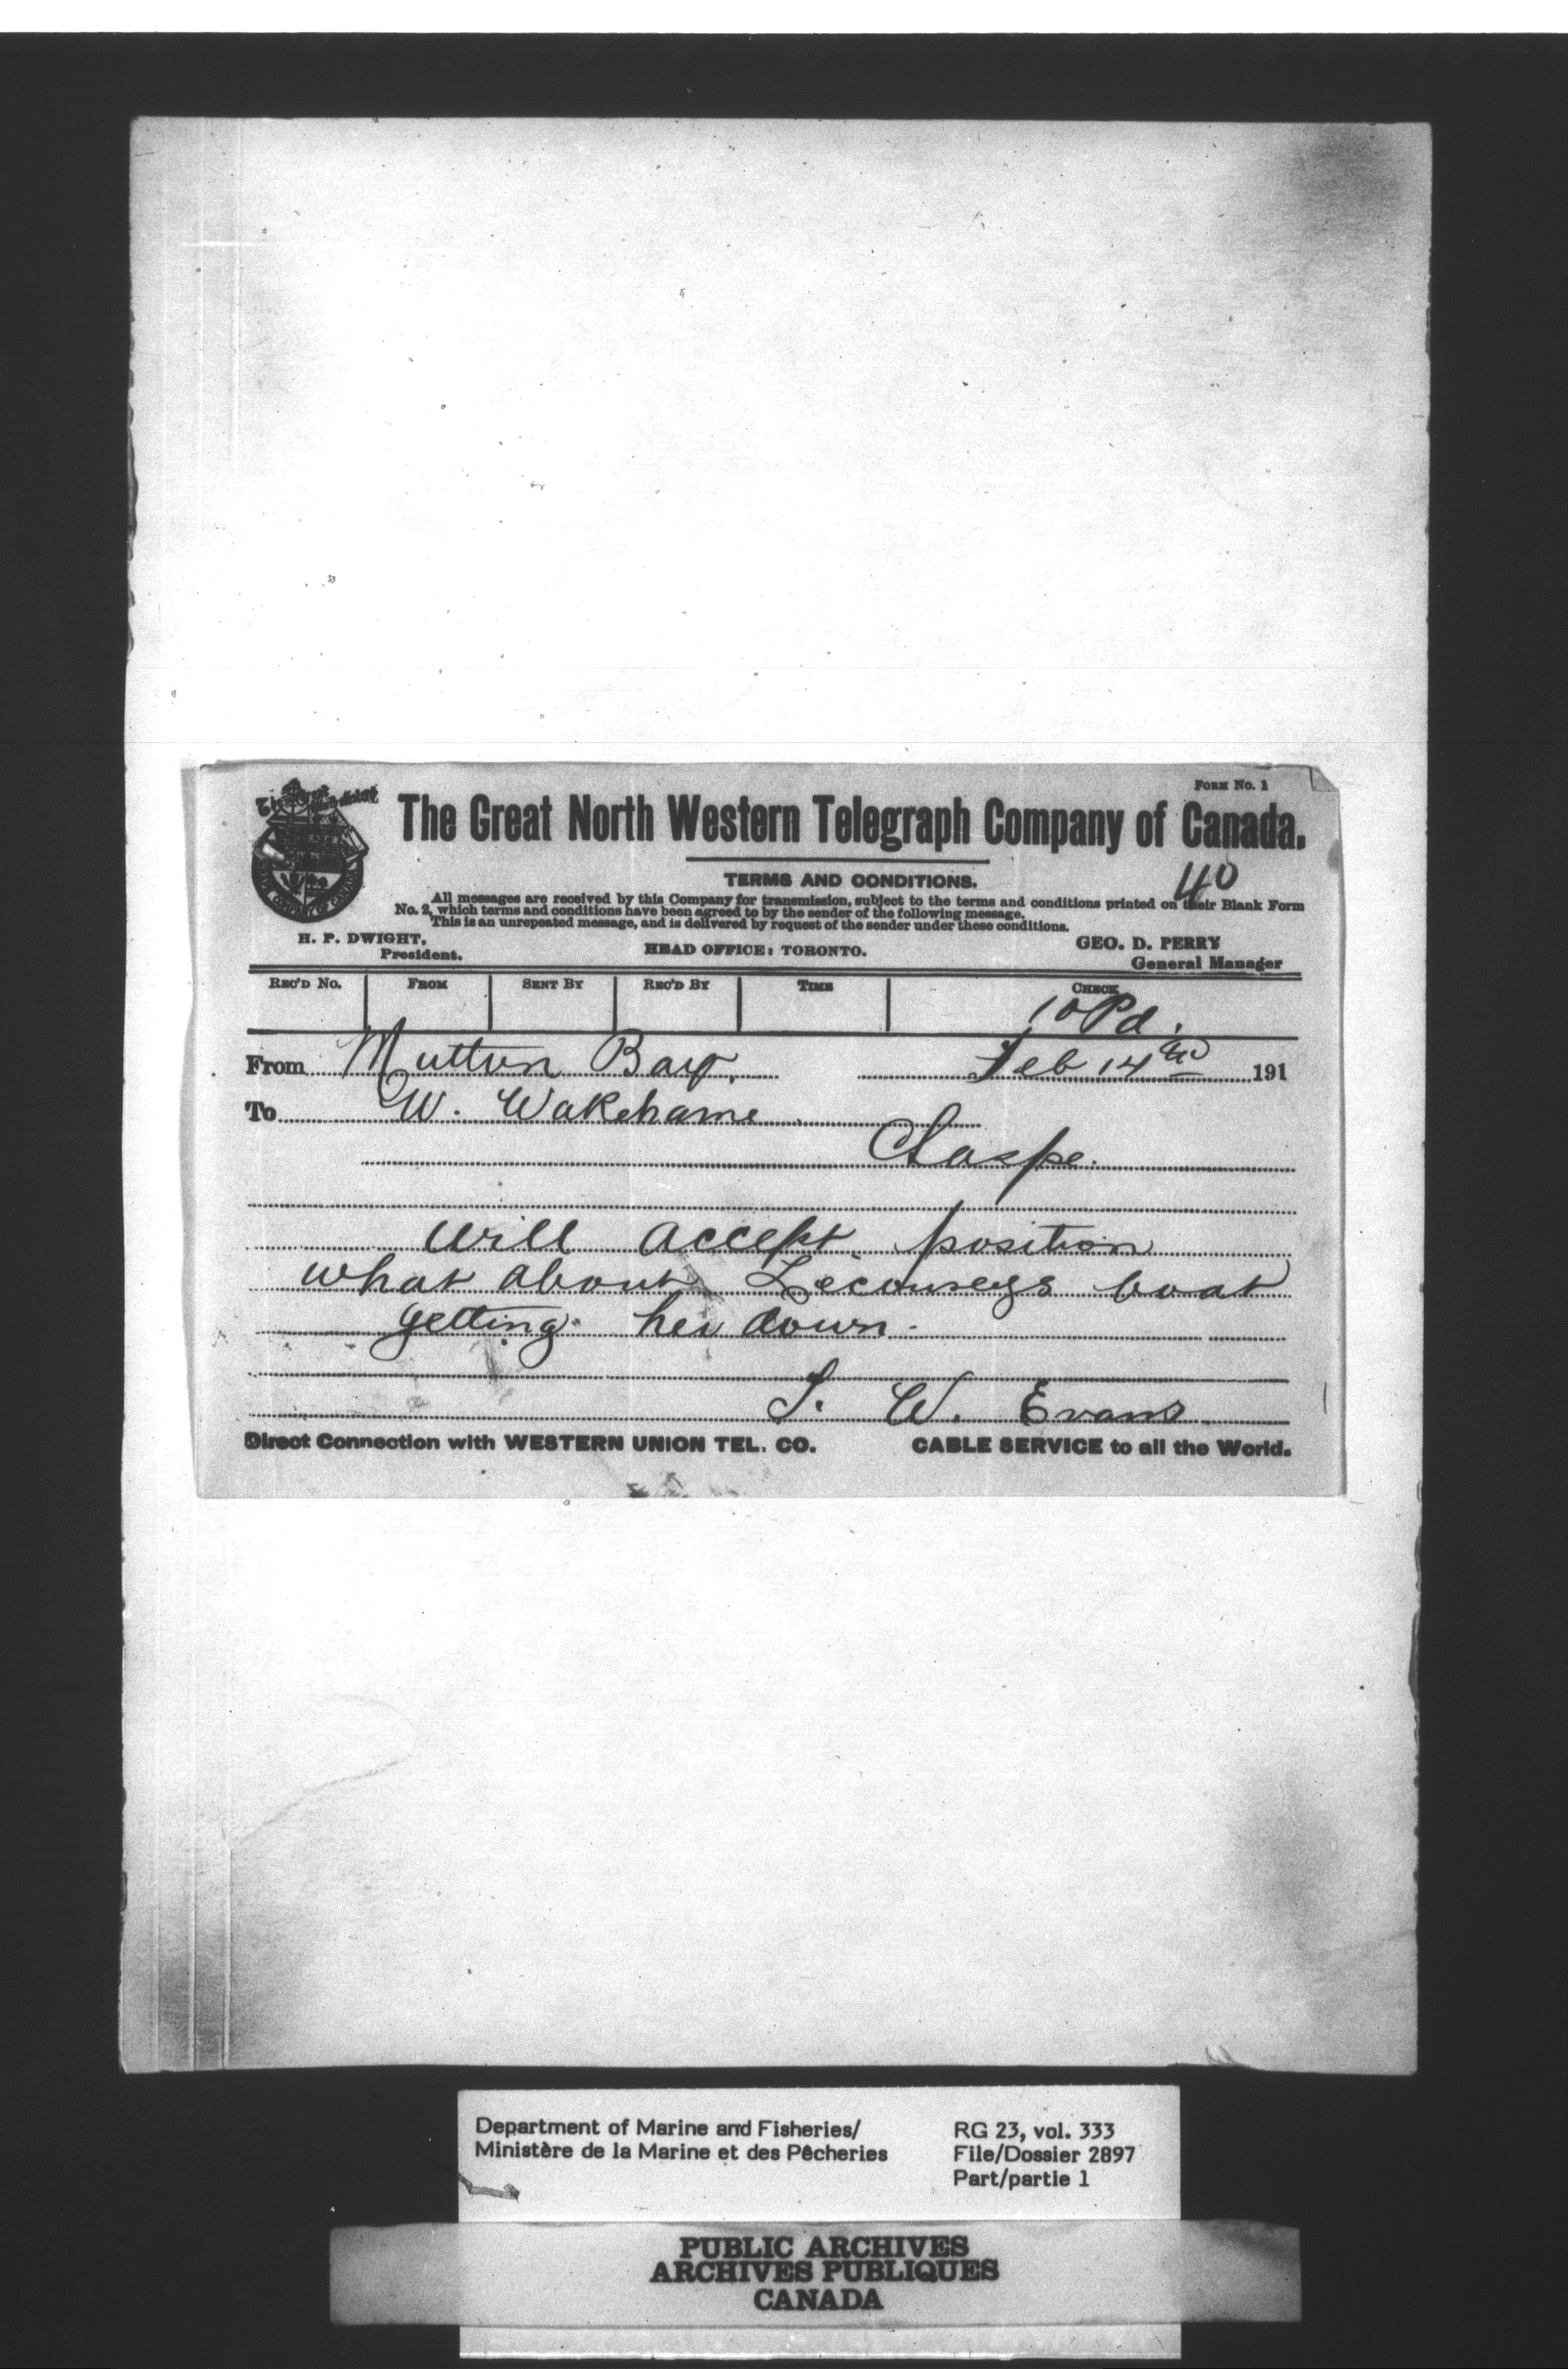 Form No. 1
The Great North Western Telegraph Company of Canada.
40
TERMS AND CONDITIONS.
All messages are received by this Company for transmission, subject to the terms and conditions printed on their Blank Form
No. 2, which terms and conditions have been agreed to by the sender of the following message.
This is an unrepeated message, and is delivered by request of the sender under these conditions.
H. P. DWIGHT, President.
HEAD OFFICE: TORONTO.
GEO. D. PERRY General Manager
REC'D No. FROM SENT BY REC'D BY TIME CHECK
10 Pd.
From Mutton Bay. Feb 14th 191
To W. Wakehame
Gaspe.
Will accept position
what about Lecouseys boat
getting her down.
S. W. Evans
Direct Connection with WESTERN UNION TEL. CO. CABLE SERVICE to all the World.
Department of Marine and Fisheries/ RG 23, vol. 333
Ministère de la Marine et des Pêcheries File/Dossier 2897
Part/partie 1
PUBLIC ARCHIVES
ARCHIVES PUBLIQUES
CANADA